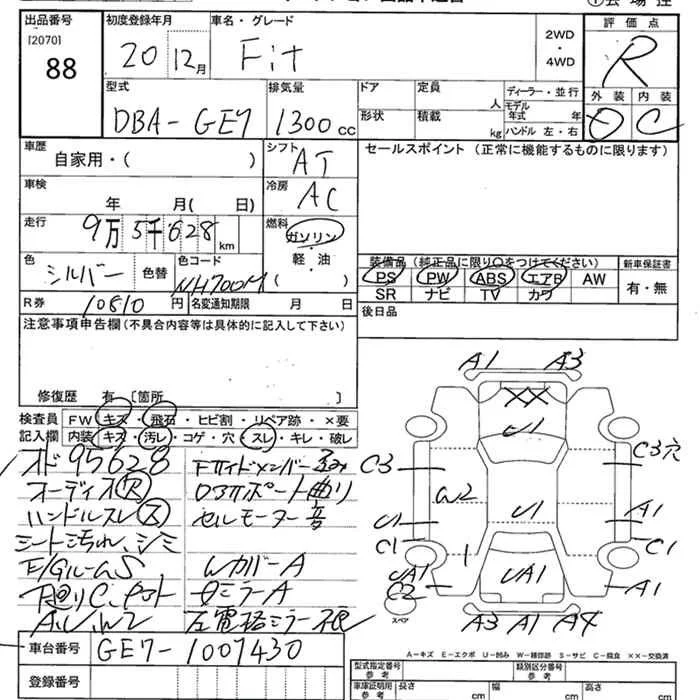 出品番号 初度登録年月 車名・グレード 評価点
[2070]
88
20 12月 Fit 2WD・4WD R
型式 排気量 ドア 定員 人 ディーラー・並行 外装 内装
DBA-GE7 1300cc 形状 積載 kg モデル年式 年 ハンドル 左・右 C
車歴 自家用・( ) シフト AT セールスポイント (正常に機能するものに限ります)
車検 年 月( 日) 冷房 AC
走行 9万5千628km 燃料 ガソリン・軽油・( )
色 シルバー 色替 色コード NH700M
装備品 (純正品に限り○をつけてください) 新車保証書
PS PW ABS エアB AW 有・無
SR ナビ TV カワ
R券 10810円 名変通知期限 月 日 後日品
注意事項申告欄(不具合内容等は具体的に記入して下さい)
修復歴 有 [箇所 ]
検査員記入欄 FW キズ・飛石・ヒビ割・リペア跡・×要
内装 キズ・汚レ・コゲ・穴・スレ・キレ・破レ
オド95628
オーディス欠
ハンドルスレス
シート汚れ、シミ
E/GルームS
下廻りC、
Fサイドメンバー歪み
ロアサポート曲り
セルモーター音
WカバーA
左電格ミラー
A1 A3
XX
U1
C3 C3穴
W2 U1
U1 A1
C1 C1
1
UA1 UA1 A1
C2
スペア
A3 A1 A4
車台番号 GE7-1007430
登録番号
A-キズ E-エクボ U-凹み W-補修跡 S-サビ C-腐食 XX-交換済
型式指定番号 類別区分番号
車庫証明用参考 長さ cm 幅 cm 高さ cm